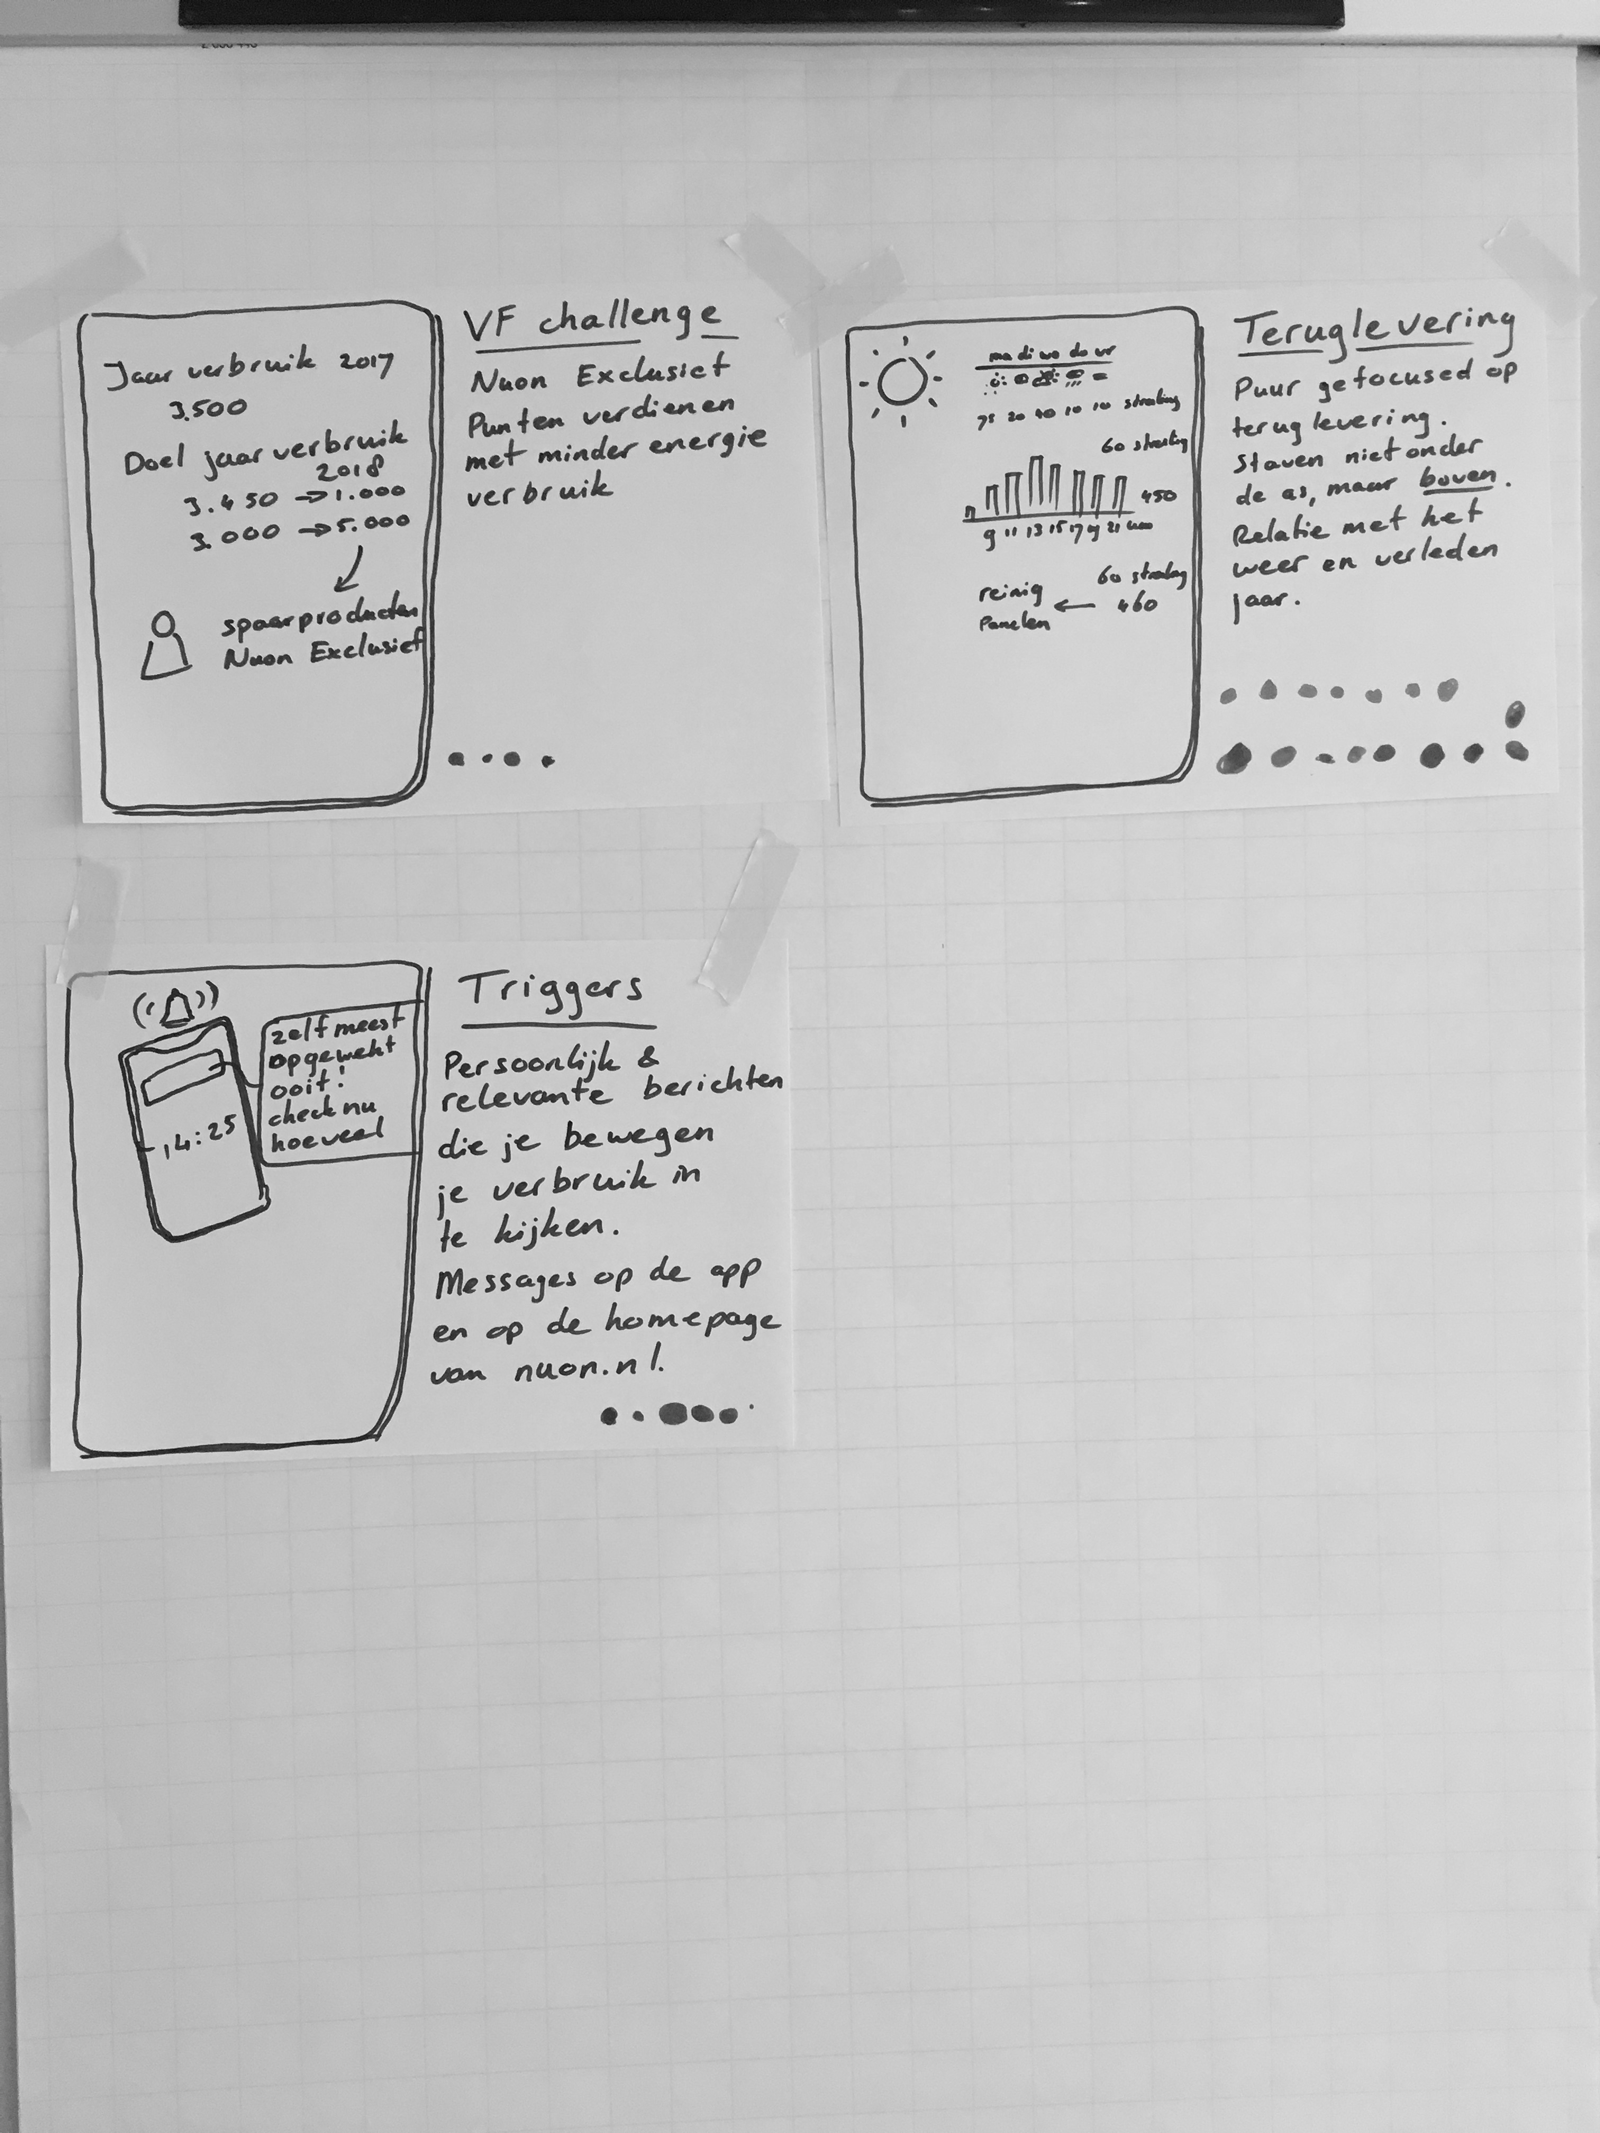 Jaar verbruik 2017
3.500
Doel jaarverbruik
2018
3.450 → 1.000
3.000 → 5.000
spaarproducten
Nuon Exclusief
VF challenge
Nuon Exclusief
Punten verdienen
met minder energie
verbruik
ma di wo do vr
75 20 40 10 10 straling
60 straling
450
9 11 13 15 17 19 21
60 straling
reinig ← 460
Panelen
Teruglevering
Puur gefocused op
teruglevering.
Staven niet onder
de as, maar boven.
Relatie met het
weer en verleden
jaar.
zelf meest
opgewekt
ooit!
check nu
hoeveel
14:25
Triggers
Persoonlijk &
relevante berichten
die je bewegen
je verbruik in
te kijken.
Messages op de app
en op de homepage
van nuon.nl.